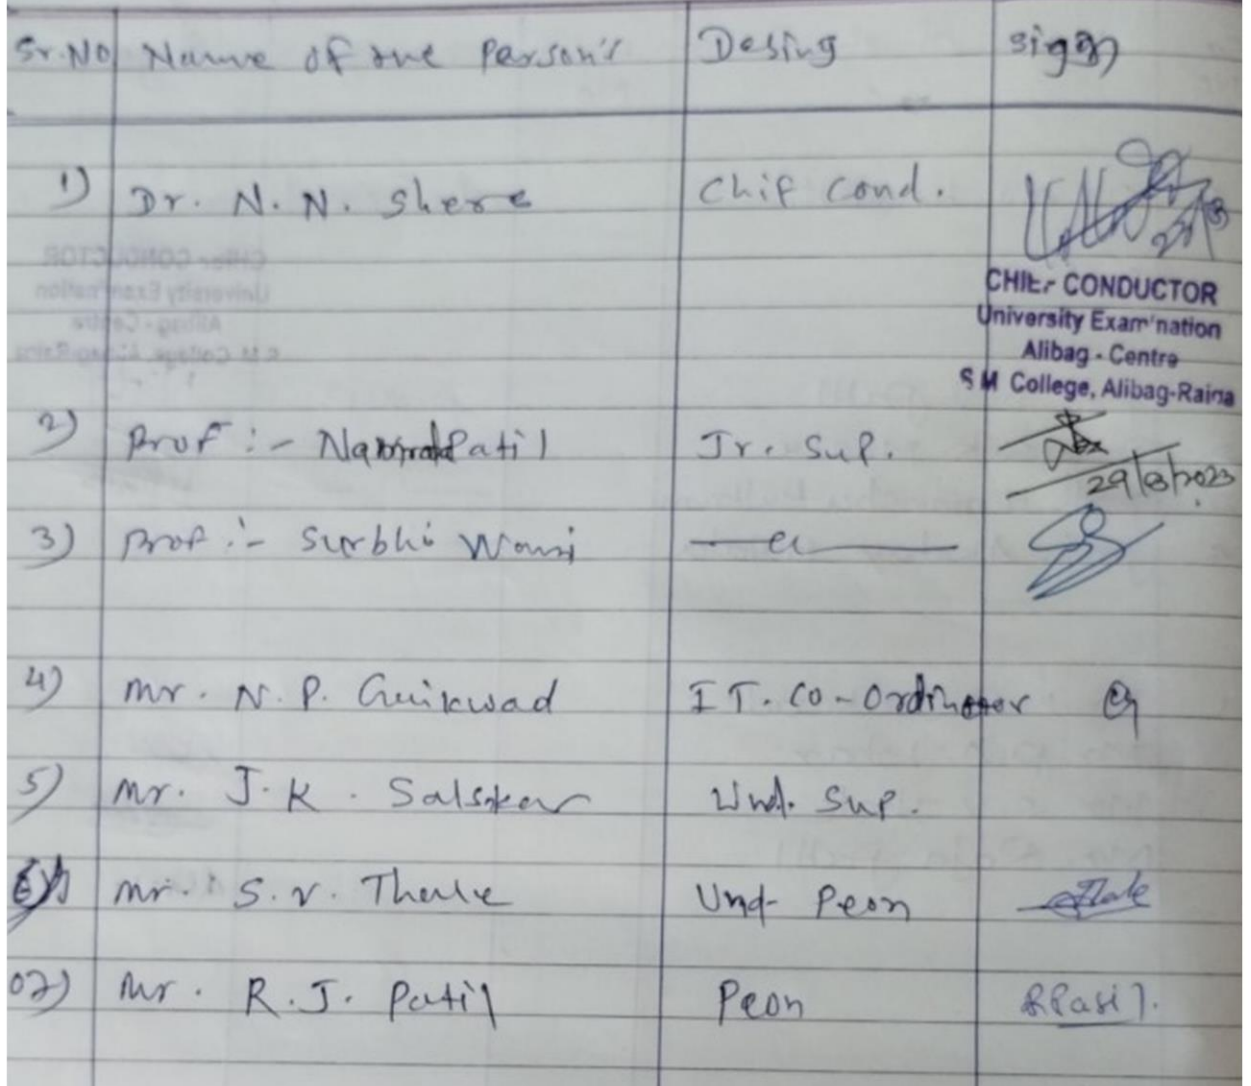 Sr.No Name of the Person's Desing sign
1) Dr. N. N. Shere Chif Cond.
CHIEF CONDUCTOR
University Examination
Alibag - Centre
S M College, Alibag-Raina
2) Prof :- Patil Jr. Sup.
29/8/2023
3) Prof :- Surbhi Wani — 〃 —
4) Mr. N. P. Gaikwad I T. Co-ordinator
5) Mr. J. K. Salskar Und. Sup.
6) Mr. S. V. Thale Und- Peon Thale
07) Mr. R. J. Patil Peon RPatil.